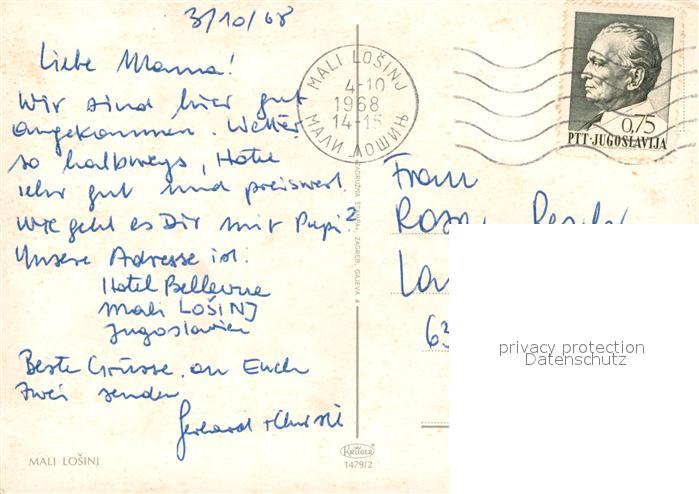 3/10/68
Liebe Mama!
Wir sind hier gut
angekommen. Wetter
so halbwegs, Hotel
sehr gut und preiswert.
Wie geht es Dir mit Papi?
Unsere Adresse ist:
Hotel Bellevue
Mali LOŠINJ
Jugoslavien
Beste Grüsse an Euch
zwei senden
Gerhard + Christl
MALI LOŠINJ
MALI LOŠINJ
4-10
1968
14-15
МАЛИ ЛОШИЊ
0,75
PTT·JUGOSLAVIJA
ZADRUŽNA ŠTAMPA, ZAGREB, GAJEVA 4
Frau
63
privacy protection
Datenschutz
KRÜGER
1479/2